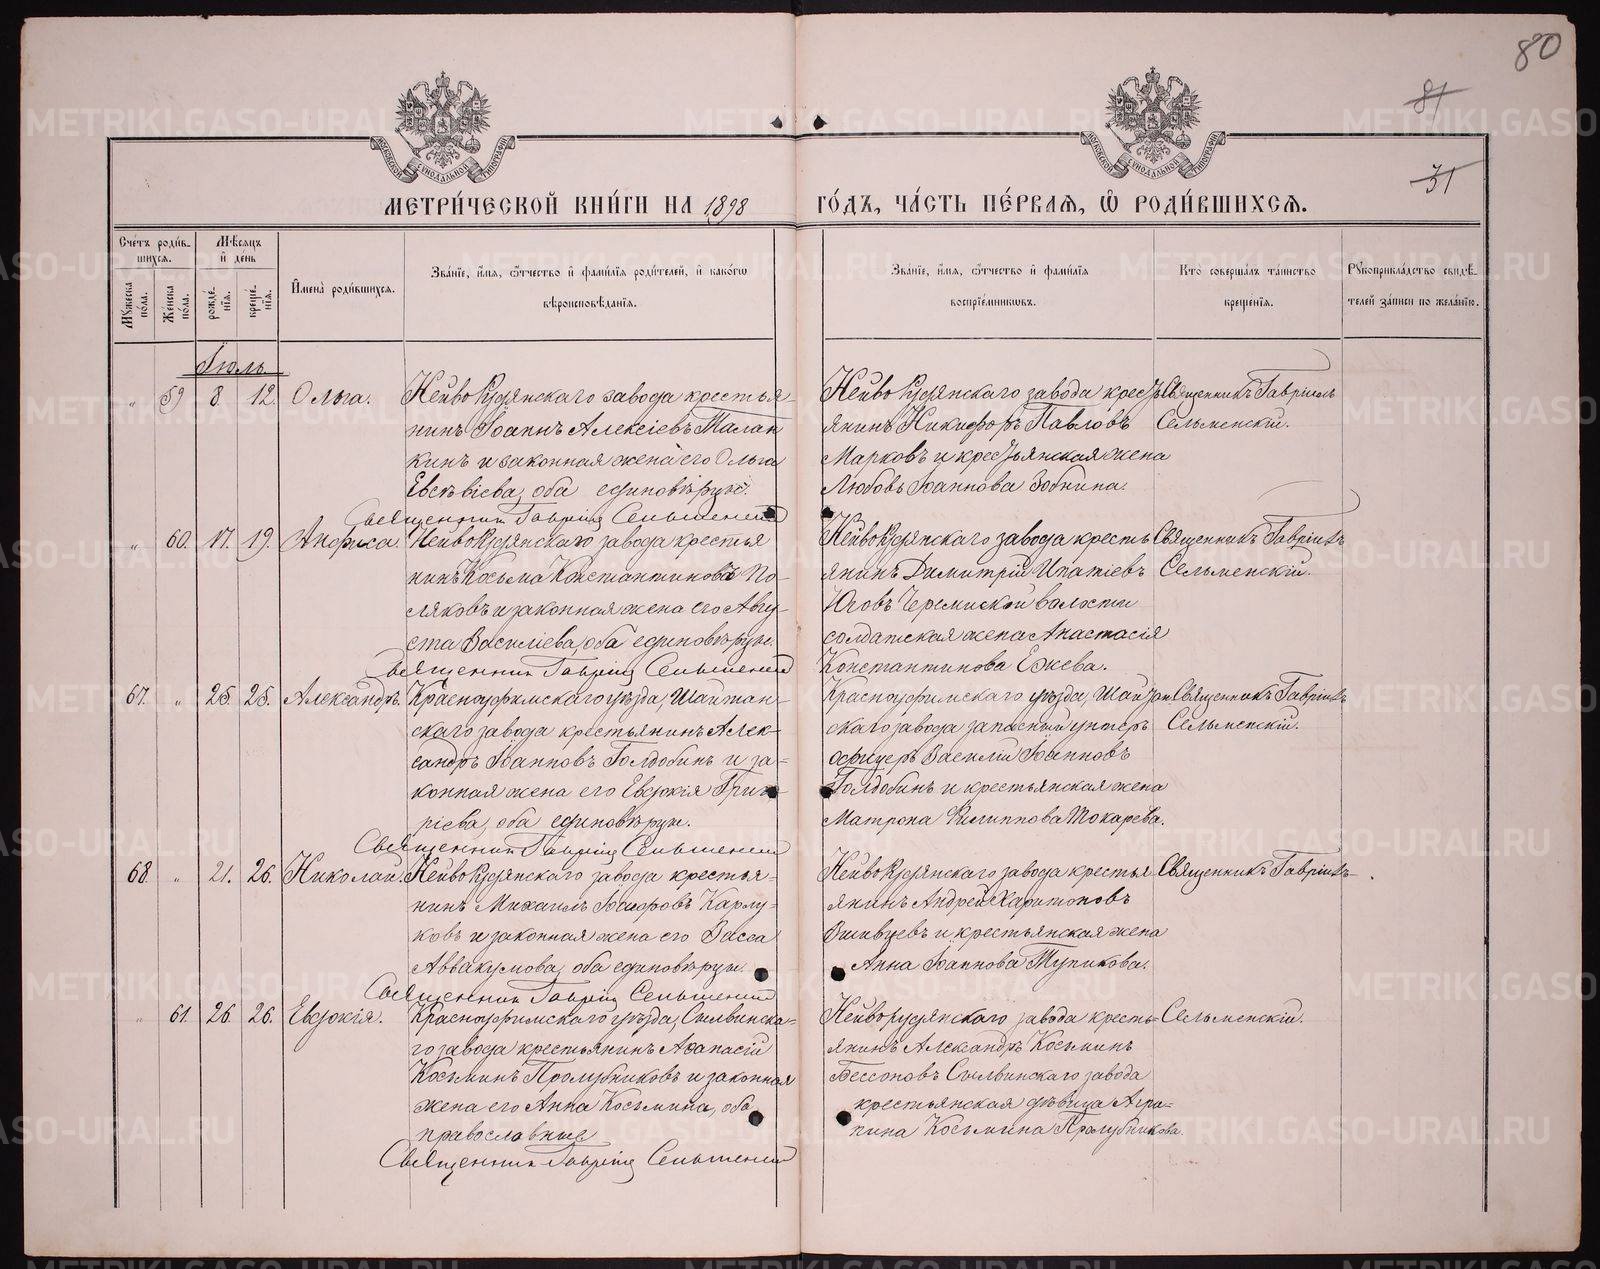 80
81
31
МЕТРИ́ЧЕСКОЙ КНИ́ГИ НА 1898 ГО́ДЪ, ЧА́СТЬ ПЕ́РВАЯ, Ѡ РОДИ́ВШИХСЯ.
Сче́тъ роди́в-
шихся.
Мѣ́сяцъ
и҆ де́нь
Мꙋ́жеска по́ла.
Же́нска по́ла.
рожде́нїя.
креще́нїя.
И҆мена̀ роди́вшихся.
Зва́нїе, и҆́мя, ѻ҆́тчество и҆ фами́лїя роди́телей, и҆ како́гѡ
вѣроисповѣ́данїя.
Зва́нїе, и҆́мя, ѻ҆́тчество и҆ фами́лїя
воспрїе́мникѡвъ.
Кто̀ соверша́лъ та́инство
креще́нїя.
Рꙋкоприкла́дство свидѣ́-
телей за́писи по жела́нїю.
Іюль
" 59 8. 12. Ольга.
Нейворудянскаго завода крестья-
нинъ Іоаннъ Алексіевъ Талан
кинъ и законная жена его Ольга
Евсевіева, оба единовѣрцы.
Священник Гавріил Сельменский
Нейворудянскаго завода кресть
янинъ Никифоръ Павловъ
Марковъ и крестьянская жена
Любовь Іоаннова Зобнина.
Священникъ Гавріилъ
Сельменскій.
" 60. 17. 19. Анфиса.
Нейворудянскаго завода крестья
нинъ Косьма Константиновъ По-
ляковъ и законная жена его Авгу-
ста Василіева, оба единовѣрцы.
Священник Гавріил Сельменский
Нейворудянскаго завода кресть
янинъ Димитрій Ипатіевъ
Юговъ Черемиской волости
солдатская жена Анастасія
Константинова Ежева.
Священникъ Гавріилъ
Сельменскій.
67. " 25. 25. Александръ.
Красноуфимскаго уѣзда, Шайтан-
скаго завода крестьянинъ Алек-
сандръ Іоанновъ Голдобинъ и за-
конная жена его Евдокія Григо-
ріева, оба единовѣрцы.
Священник Гавріил Сельменский
Красноуфимскаго уѣзда, Шайтан
скаго завода запасный унтеръ
офицеръ Василій Іоанновъ
Голдобинъ и крестьянская жена
Матрона Филиппова Токарева.
Священникъ Гавріилъ
Сельменскій.
68. " 21. 26. Николай.
Нейворудянскаго завода крестья-
нинъ Михаилъ Карлу-
ковъ и законная жена его Васса
Аввакумова, оба единовѣрцы.
Священник Гавріил Сельменский
Нейворудянскаго завода кресть
янинъ Андрей Харитоновъ
Вшивцевъ и крестьянская жена
Анна Іоаннова Тупикова.
Священникъ Гавріилъ
" 61. 26. 26. Евдокія.
Красноуфимскаго уѣзда, Сылвинска-
го завода крестьянинъ Афанасій
Косьминъ Пролубниковъ и законная
жена его Анна Косьмина, оба
православные
Священник Гавріил Сельменский
Нейворудянскаго завода кресть-
янинъ Александръ Косьминъ
Бессоновъ Сылвинскаго завода
крестьянская дѣвица Агра-
пина Косьмина Пролубникова.
Сельменскій.
METRIKI.GASO-URAL.RU